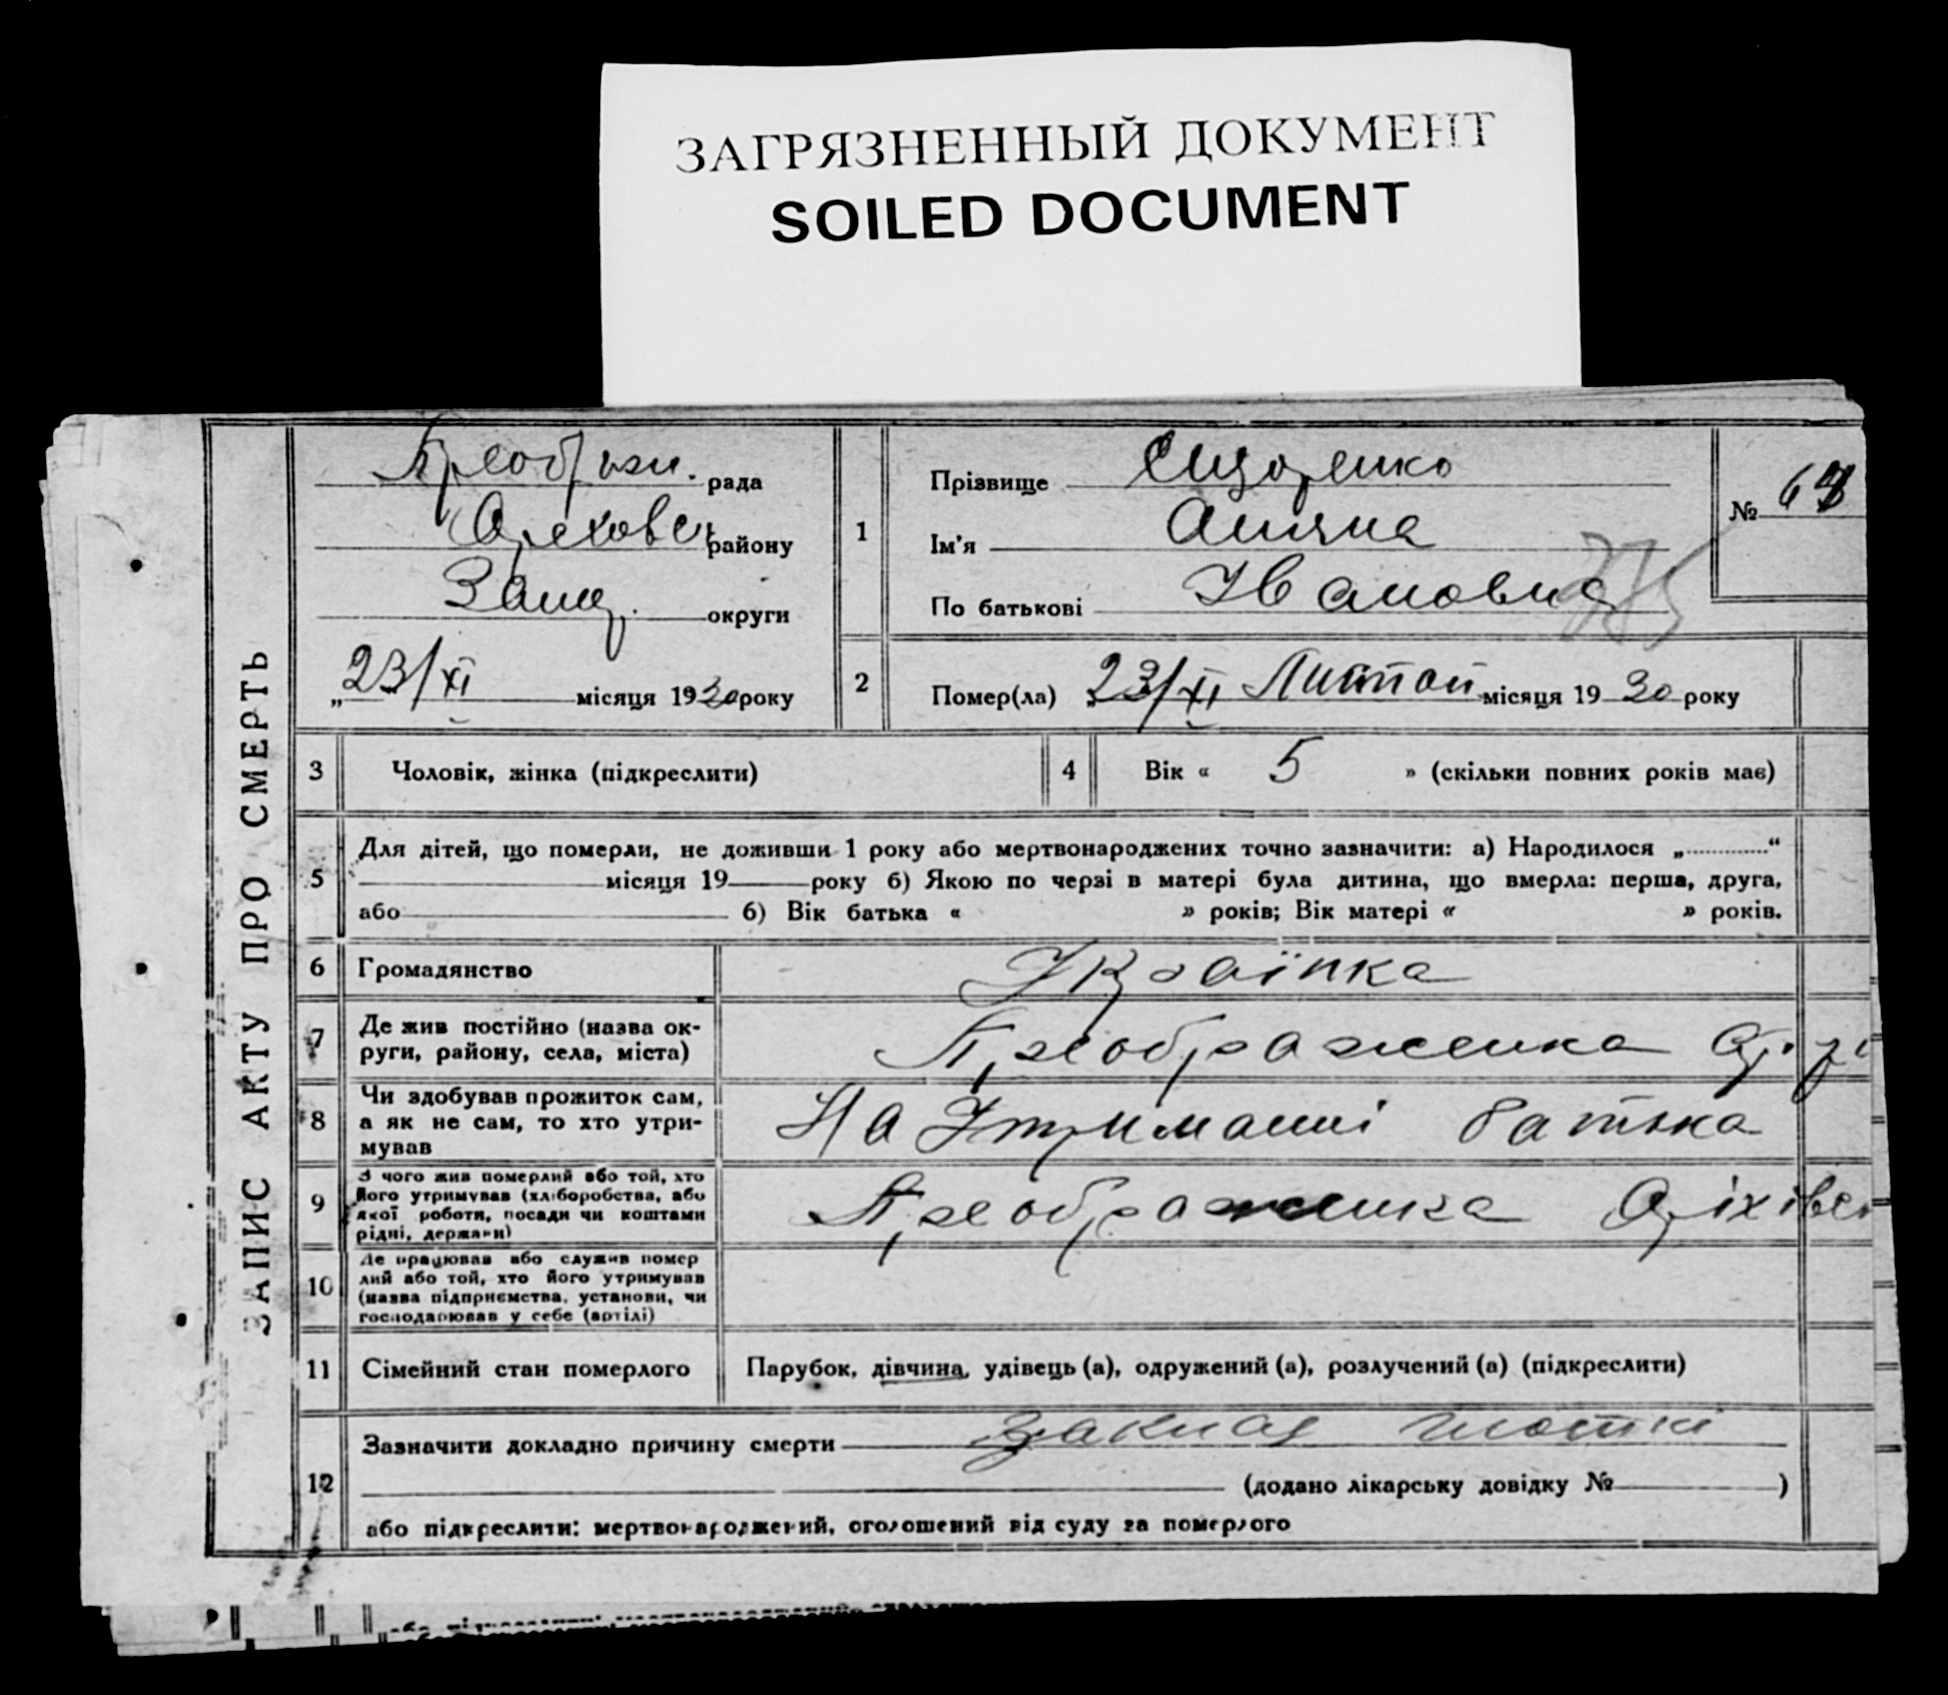 ЗАГРЯЗНЕННЫЙ ДОКУМЕНТ
SOILED DOCUMENT
ЗАПИС АКТУ ПРО СМЕРТЬ
Преображ. рада
Ореховск району
Запор. округи
„23/XI місяця 1930 року
1
Прізвище Сидоренко
Ім'я
По батькові Івановна
№
2
Помер(ла) „23/XI місяця 1930 року
3 Чоловік, жінка (підкреслити)
4 Вік « 5 » (скільки повних років має)
5 Для дітей, що померли, не доживши 1 року або мертвонароджених точно зазначити: а) Народилося „ “
місяця 19 року б) Якою по черзі в матері була дитина, що вмерла: перша, друга,
або б) Вік батька « » років; Вік матері « » років.
6 Громадянство Українка
7 Де жив постійно (назва ок-
руги, району, села, міста) Преображенка Ор. р
8 Чи здобував прожиток сам,
а як не сам, то хто утри-
мував На Утриманні батька
9 З чого жив померлий або той, хто
його утримував (хліборобства, або
якої роботи, посади чи коштами
рідні, держави) Преображенка Оріхівс
10 Де працював або служив помер
лий або той, хто його утримував
(назва підприємства, установи, чи
господарював у себе (артілі)
11 Сімейний стан померлого Парубок, дівчина, удівець (а), одружений (а), розлучений (а) (підкреслити)
12 Зазначити докладно причину смерти
(додано лікарську довідку № )
або підкреслити: мертвонароджений, оголошений від суду за померлого